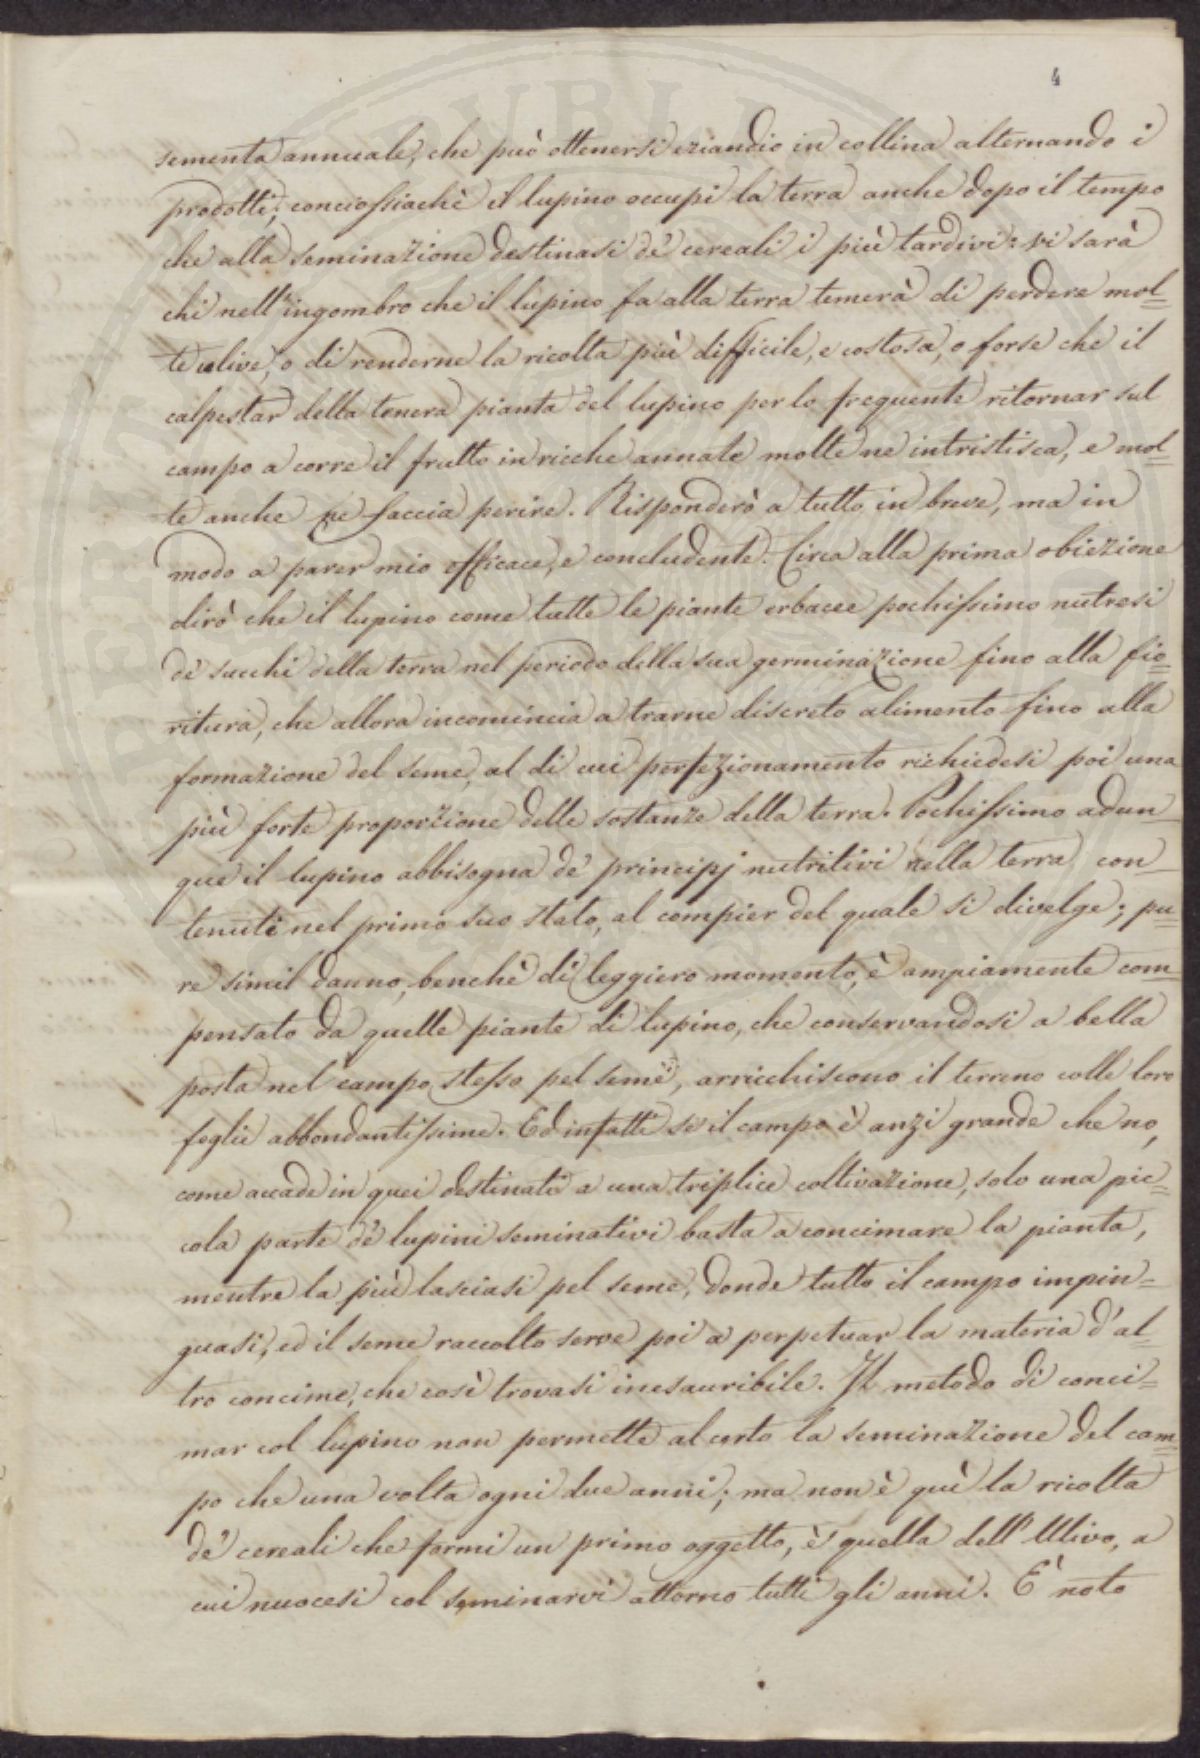 4
sementa annuale, che può ottenersi eziandio in collina alternando i
prodotti; conciossiachè il lupino occupi la terra anche dopo il tempo
che alla seminazione destinasi de' cereali i più tardivi: vi sarà
chi nell'ingombro che il lupino fa alla terra temerà di perdere mol=
te ulive, o di renderne la ricolta più difficile, e costosa, o forse che il
calpestar della tenera pianta del lupino per lo frequente ritornar sul
campo a corre il frutto in ricche annate molte ne intristisca, e mol=
te anche ne faccia perire. Risponderò a tutto in breve, ma in
modo a parer mio efficace, e concludente. Circa alla prima obiezione
dirò che il lupino come tutte le piante erbacee pochissimo nutresi
de' succhi della terra nel periodo della sua germinazione fino alla fio=
ritura, che allora incomincia a trarne discreto alimento fino alla
formazione del seme, al di cui perfezionamento richiedesi poi una
più forte proporzione delle sostanze della terra. Pochissimo adun_
que il lupino abbisogna de' principj nutritivi nella terra con_
tenuti nel primo suo stato, al compier del quale si divelge; pu=
re simil danno, benchè di leggiero momento, è ampiamente com=
pensato da quelle piante di lupino, che conservandosi a bella
posta nel campo stesso pel seme, arricchiscono il terreno colle loro
foglie abbondantissime. Ed infatti se il campo è anzi grande che no,
come accade in quei destinati a una triplice coltivazione, solo una pic=
cola parte de' lupini seminativi basta a concimare la pianta,
mentre la più lasciasi pel seme, donde tutto il campo impin=
guasi, ed il seme raccolto serve poi a perpetuar la materia d'al=
tro concime, che così trovasi inesauribile. Il metodo di conci=
mar col lupino non permette al certo la seminazione del cam=
po che una volta ogni due anni; ma non è quì la ricolta
de' cereali che formi un primo oggetto, è quella dell'Ulivo, a
cui nuocesi col seminarvi attorno tutti gli anni. E' noto